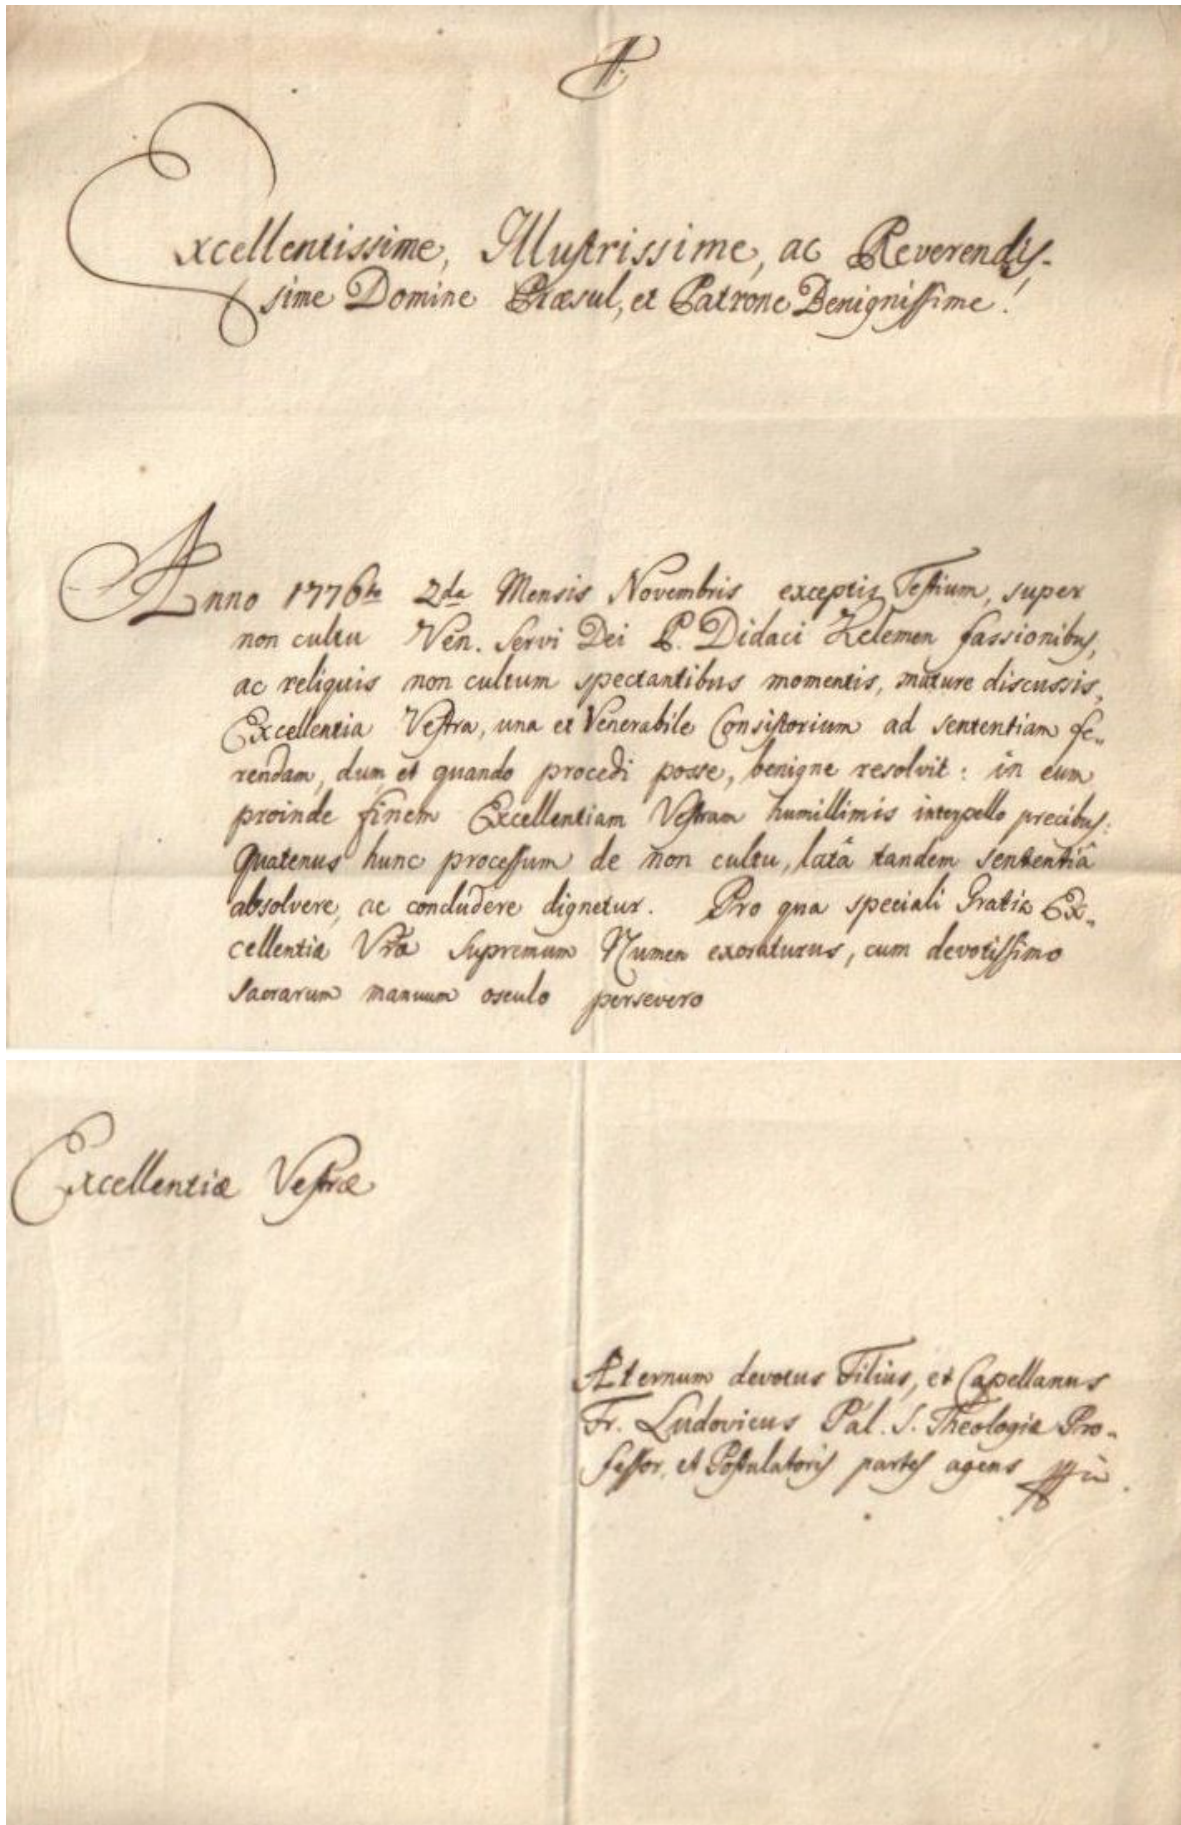 Excellentissime, Illustrissime, ac Reverendis-
sime Domine Præsul, et Patrone Benignissime!
Anno 1776to 2da Mensis Novembris exceptis Testium, super
non cultu Ven. Servi Dei P. Didaci Kelemen fassionibus,
ac reliquis non cultum spectantibus momentis, mature discussis,
Excellentia Vestra, una et Venerabile Consistorium ad sententiam fe-
rendam, dum et quando procedi posse, benigne resolvit: in eum
proinde finem Excellentiam Vestram humillimis interpello precibus:
Quatenus hunc processum de non cultu, latâ tandem sententiâ
absolvere, ac concludere dignetur. Pro qua speciali Gratia Ex-
cellentiæ Vræ Supremum Numen exoraturus, cum devotissimo
sacrarum manuum osculo persevero
Excellentiæ Vestræ
Æternum devotus Filius, et Capellanus
Fr. Ludovicus Pál. S. Theologiæ Pro-
fessor, et Postulatoris partes agens